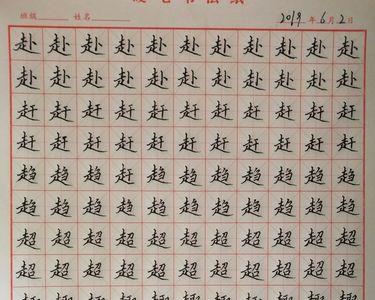 硬笔书法纸
班级 姓名 2019 年 6 月 2 日
赴赴赴赴赴赴赴赴赴赴赴
赴赴赴赴赴赴赴赴赴赴赴
赶赶赶赶赶赶赶赶赶赶赶
赶赶赶赶赶赶赶赶赶赶赶
趋趋趋趋趋趋趋趋趋趋趋
趋趋趋趋趋趋趋趋趋趋趋
超超超超超超超超超超超
超超超超超超超超超超超